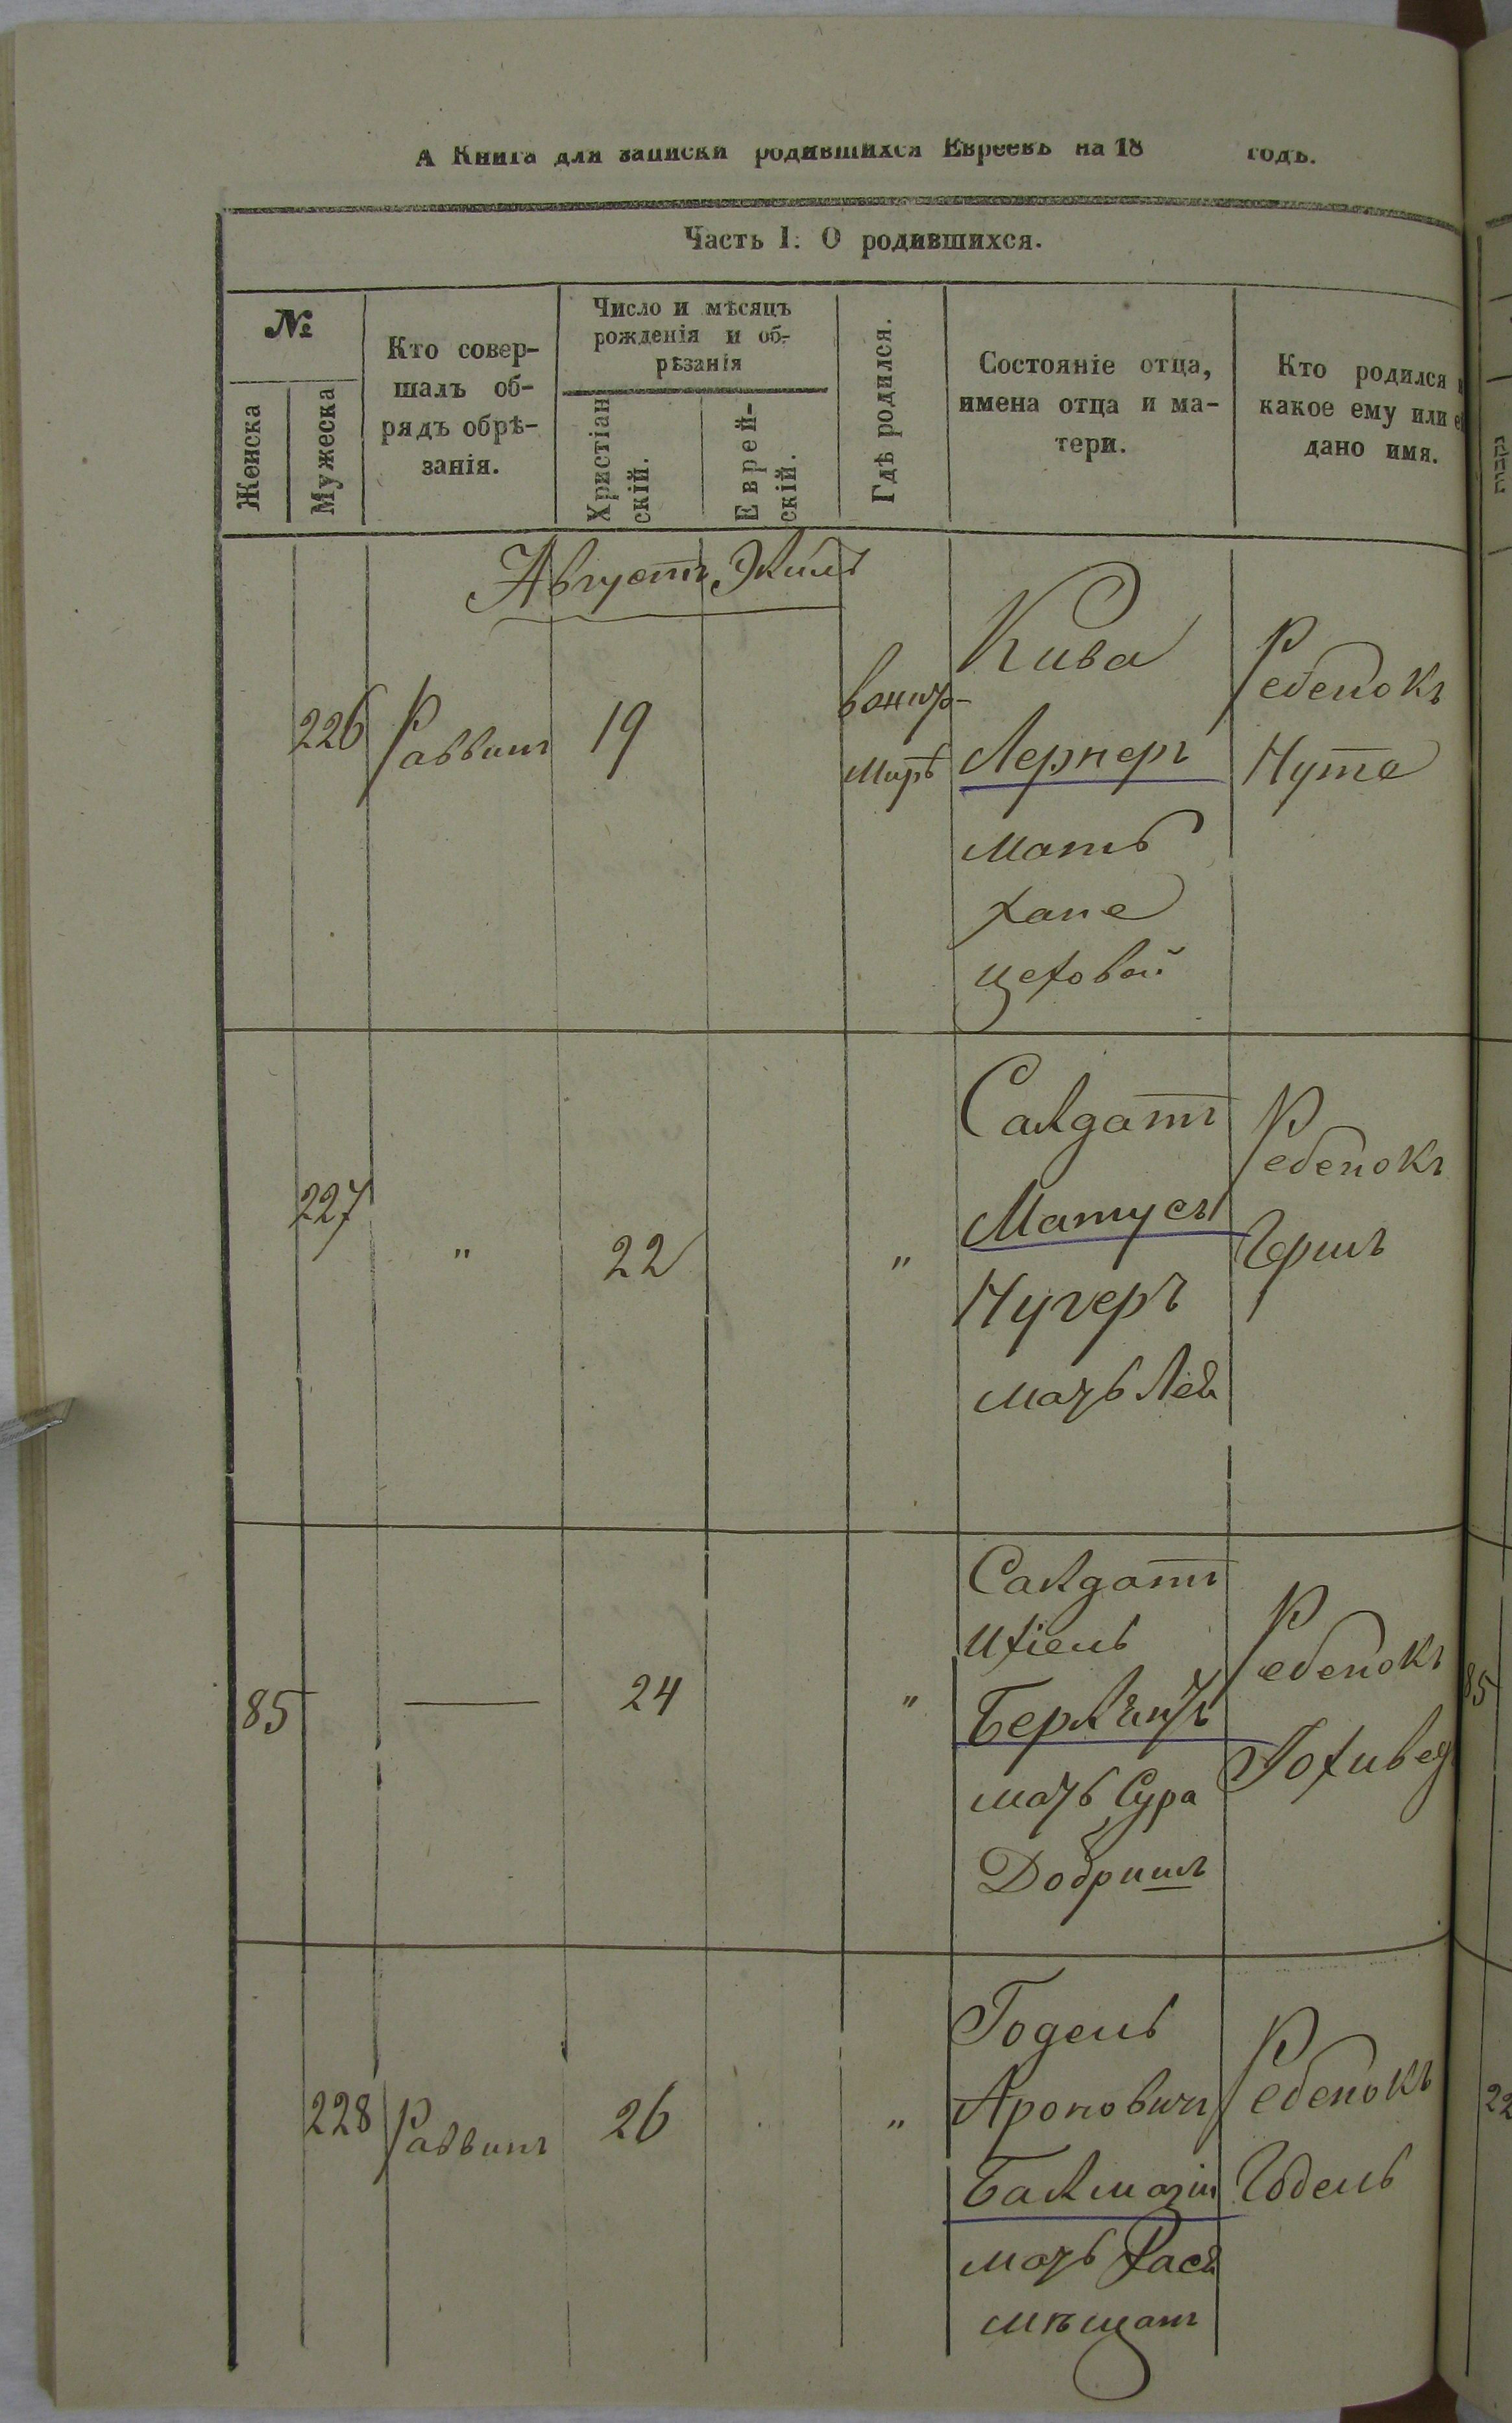 А Книга для записки родившихся Евреевъ на 18 годъ.
Часть I. О родившихся.
№
Женска
Мужеска
Кто совер-
шалъ об-
рядъ обрѣ-
занія.
Число и мѣсяцъ
рожденія и об-
рѣзанія
Христіан
скій.
Еврей-
скій.
Гдѣ родился.
Состояніе отца,
имена отца и ма-
тери.
Кто родился
какое ему или
дано имя.
נקבות
Августъ
226
Раввинъ
19
Кива
Лернеръ
мать
Хане
цеховой
Ребенокъ
Нуте
227
"
22
"
Салдатъ
Матусъ
Нугеръ
мать Лея
Ребенокъ
Гершъ
85
—
24
"
Салдатъ
Ихіель
мать Сура
Добришъ
Ребенокъ
85
228
Раввинъ
26
"
Годель
Ароновичъ
мать Хася
мѣщанъ
Ребенокъ
22